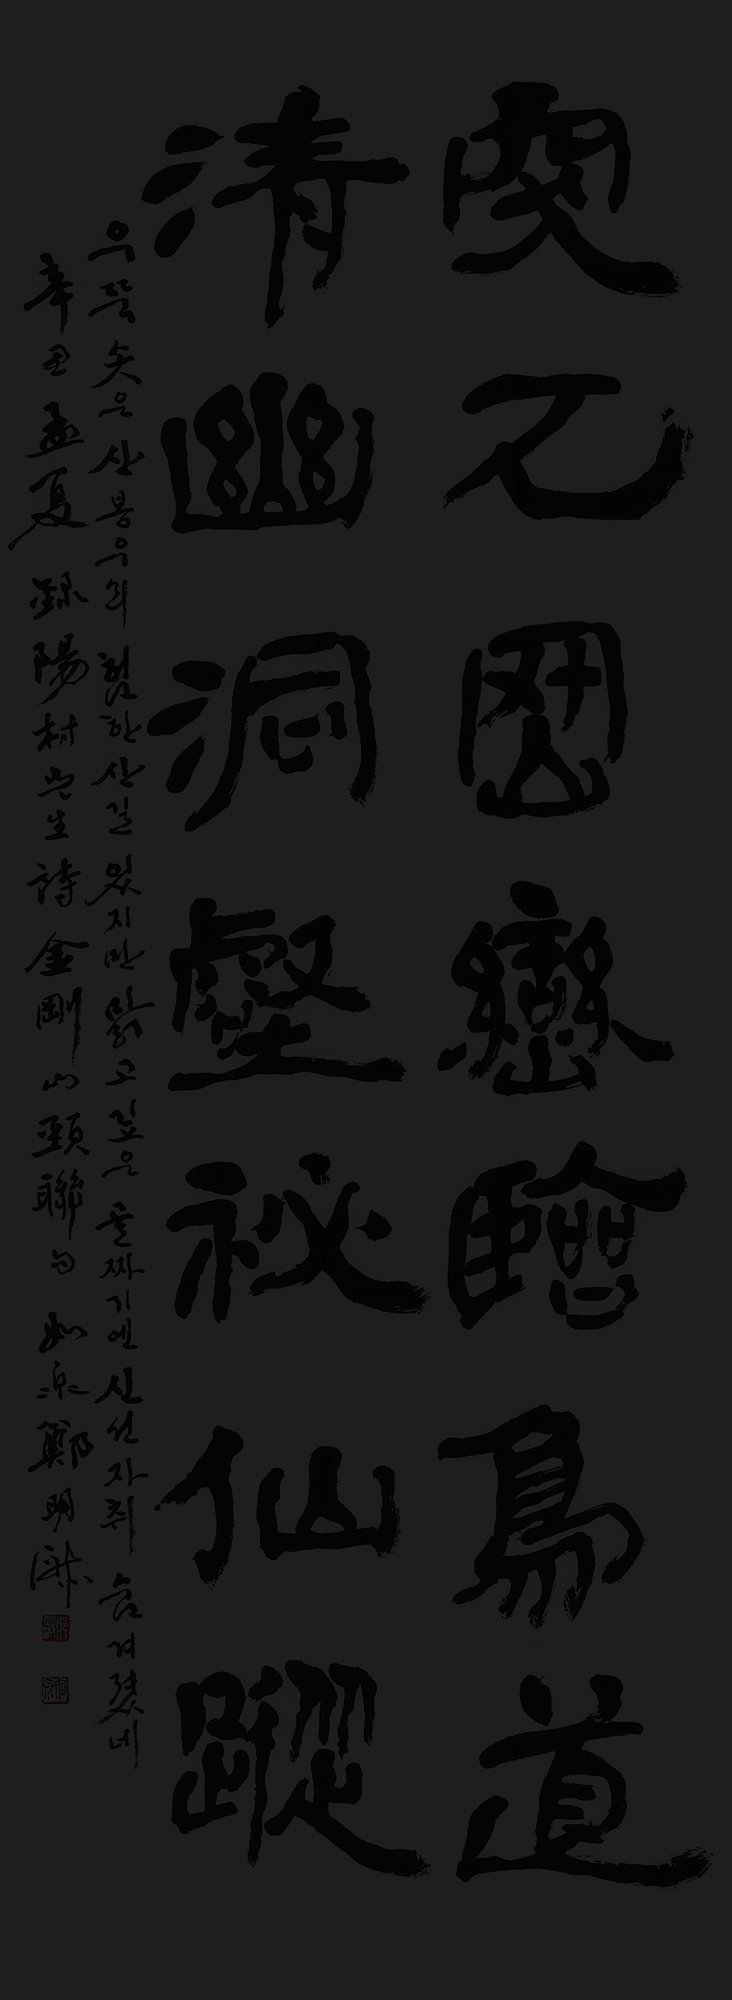 突兀岡巒臨鳥道
清幽洞壑祕仙蹤
우뚝 솟은 산봉우리 험한 산길 있지만 맑고 깊은 골짜기엔 신선 자취 숨겨졌네
辛丑孟夏 錄陽村先生詩金剛山頸聯句 如 鄭明